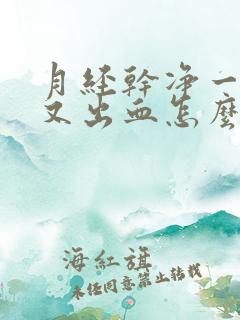 月经幹净一
又出血怎麽
海紅旗
未经同意禁止转载